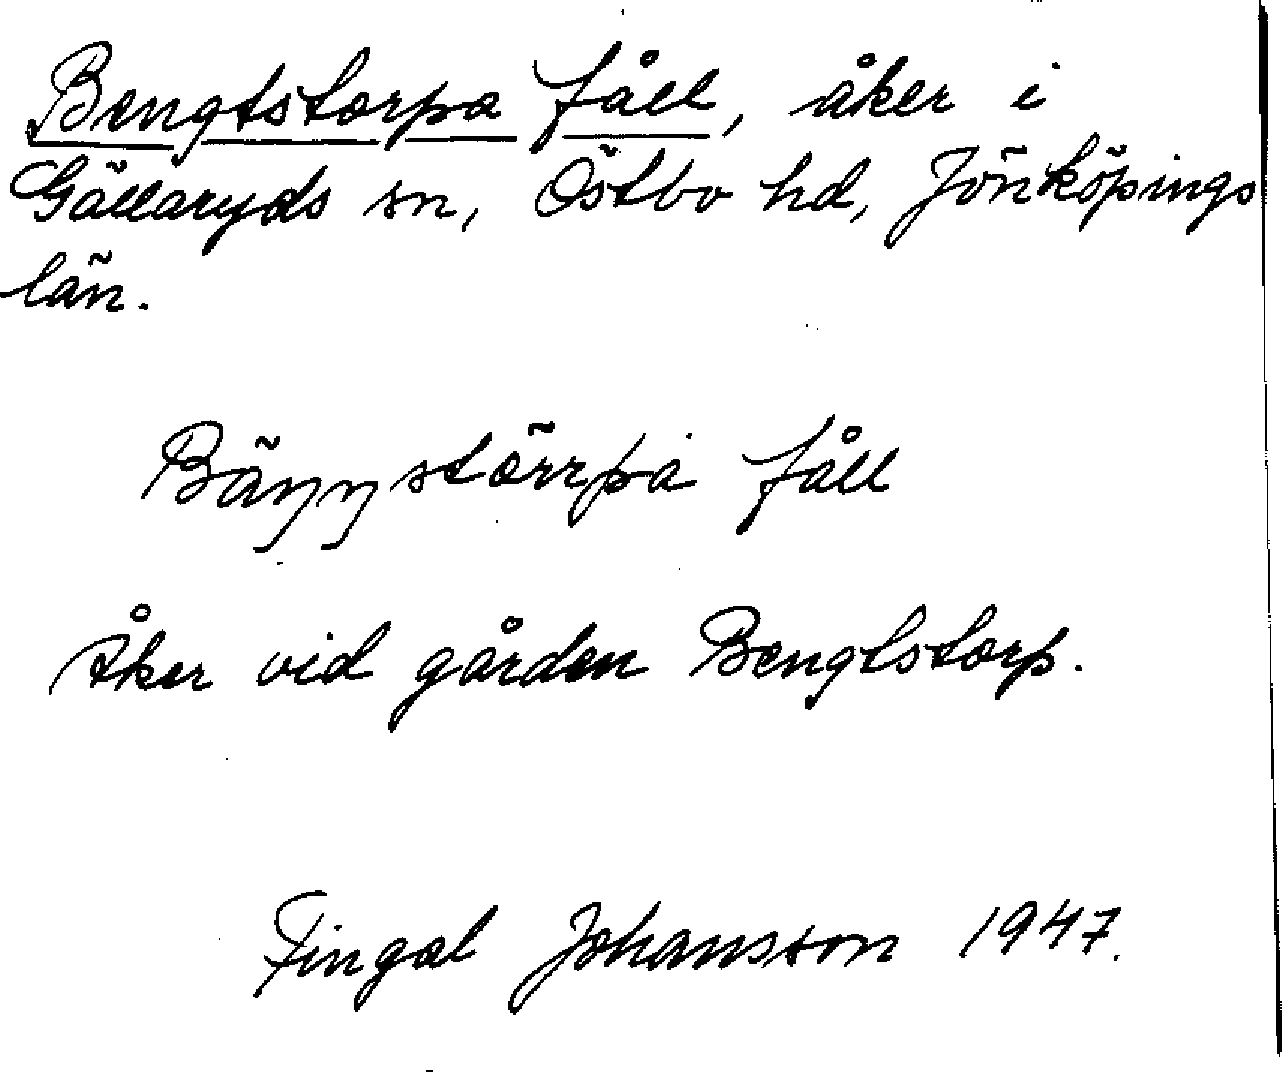 Bengtstorpa fåll, åker i
Gällaryds sn, Östbo hd, Jönköpings
län.
Bäŋŋstörrpa fåll
Åker vid gården Bengtstorp.
Fingal Johansson 1947.